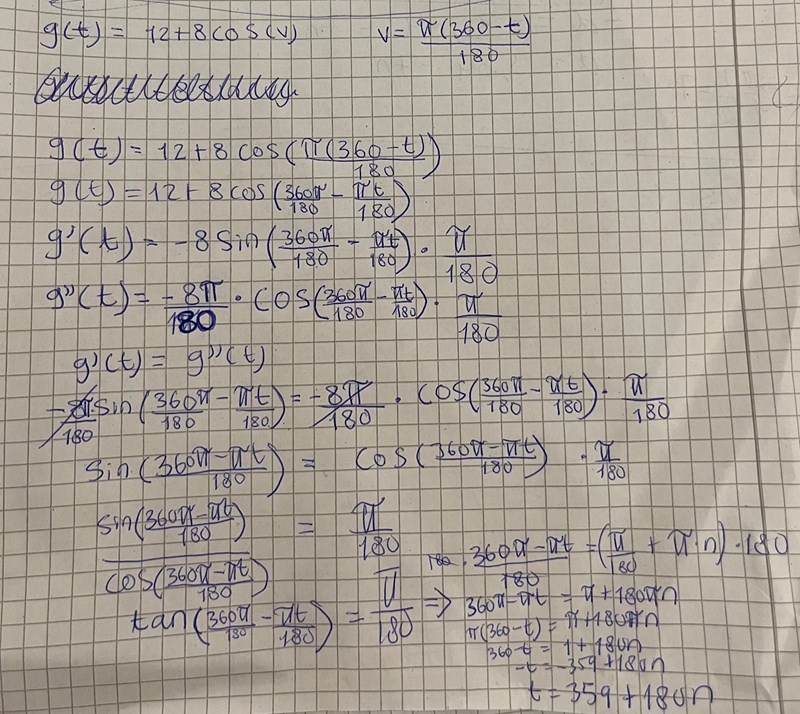 g(t) = 12+8cos(v) v = π(360-t)/180
g(t) = 12+8 cos(π(360-t)/180)
g(t) = 12+8 cos(360π/180 - πt/180)
g'(t) = -8 sin(360π/180 - πt/180) · π/180
g''(t) = -8π/180 · cos(360π/180 - πt/180) · π/180
g'(t) = g''(t)
-8π/180 sin(360π/180 - πt/180) = -8π/180 · cos(360π/180 - πt/180) · π/180
sin(360π-πt/180) = cos(360π-πt/180) · π/180
sin(360π-πt/180)/cos(360π-πt/180) = π/180
tan(360π/180 - πt/180) = π/180 =>
180 · 360π-πt/180 = (π/180 + π·n)·180
360π-πt = π+180πn
π(360-t) = π+180πn
360-t = 1+180n
-t = -359+180n
t = 359+180n